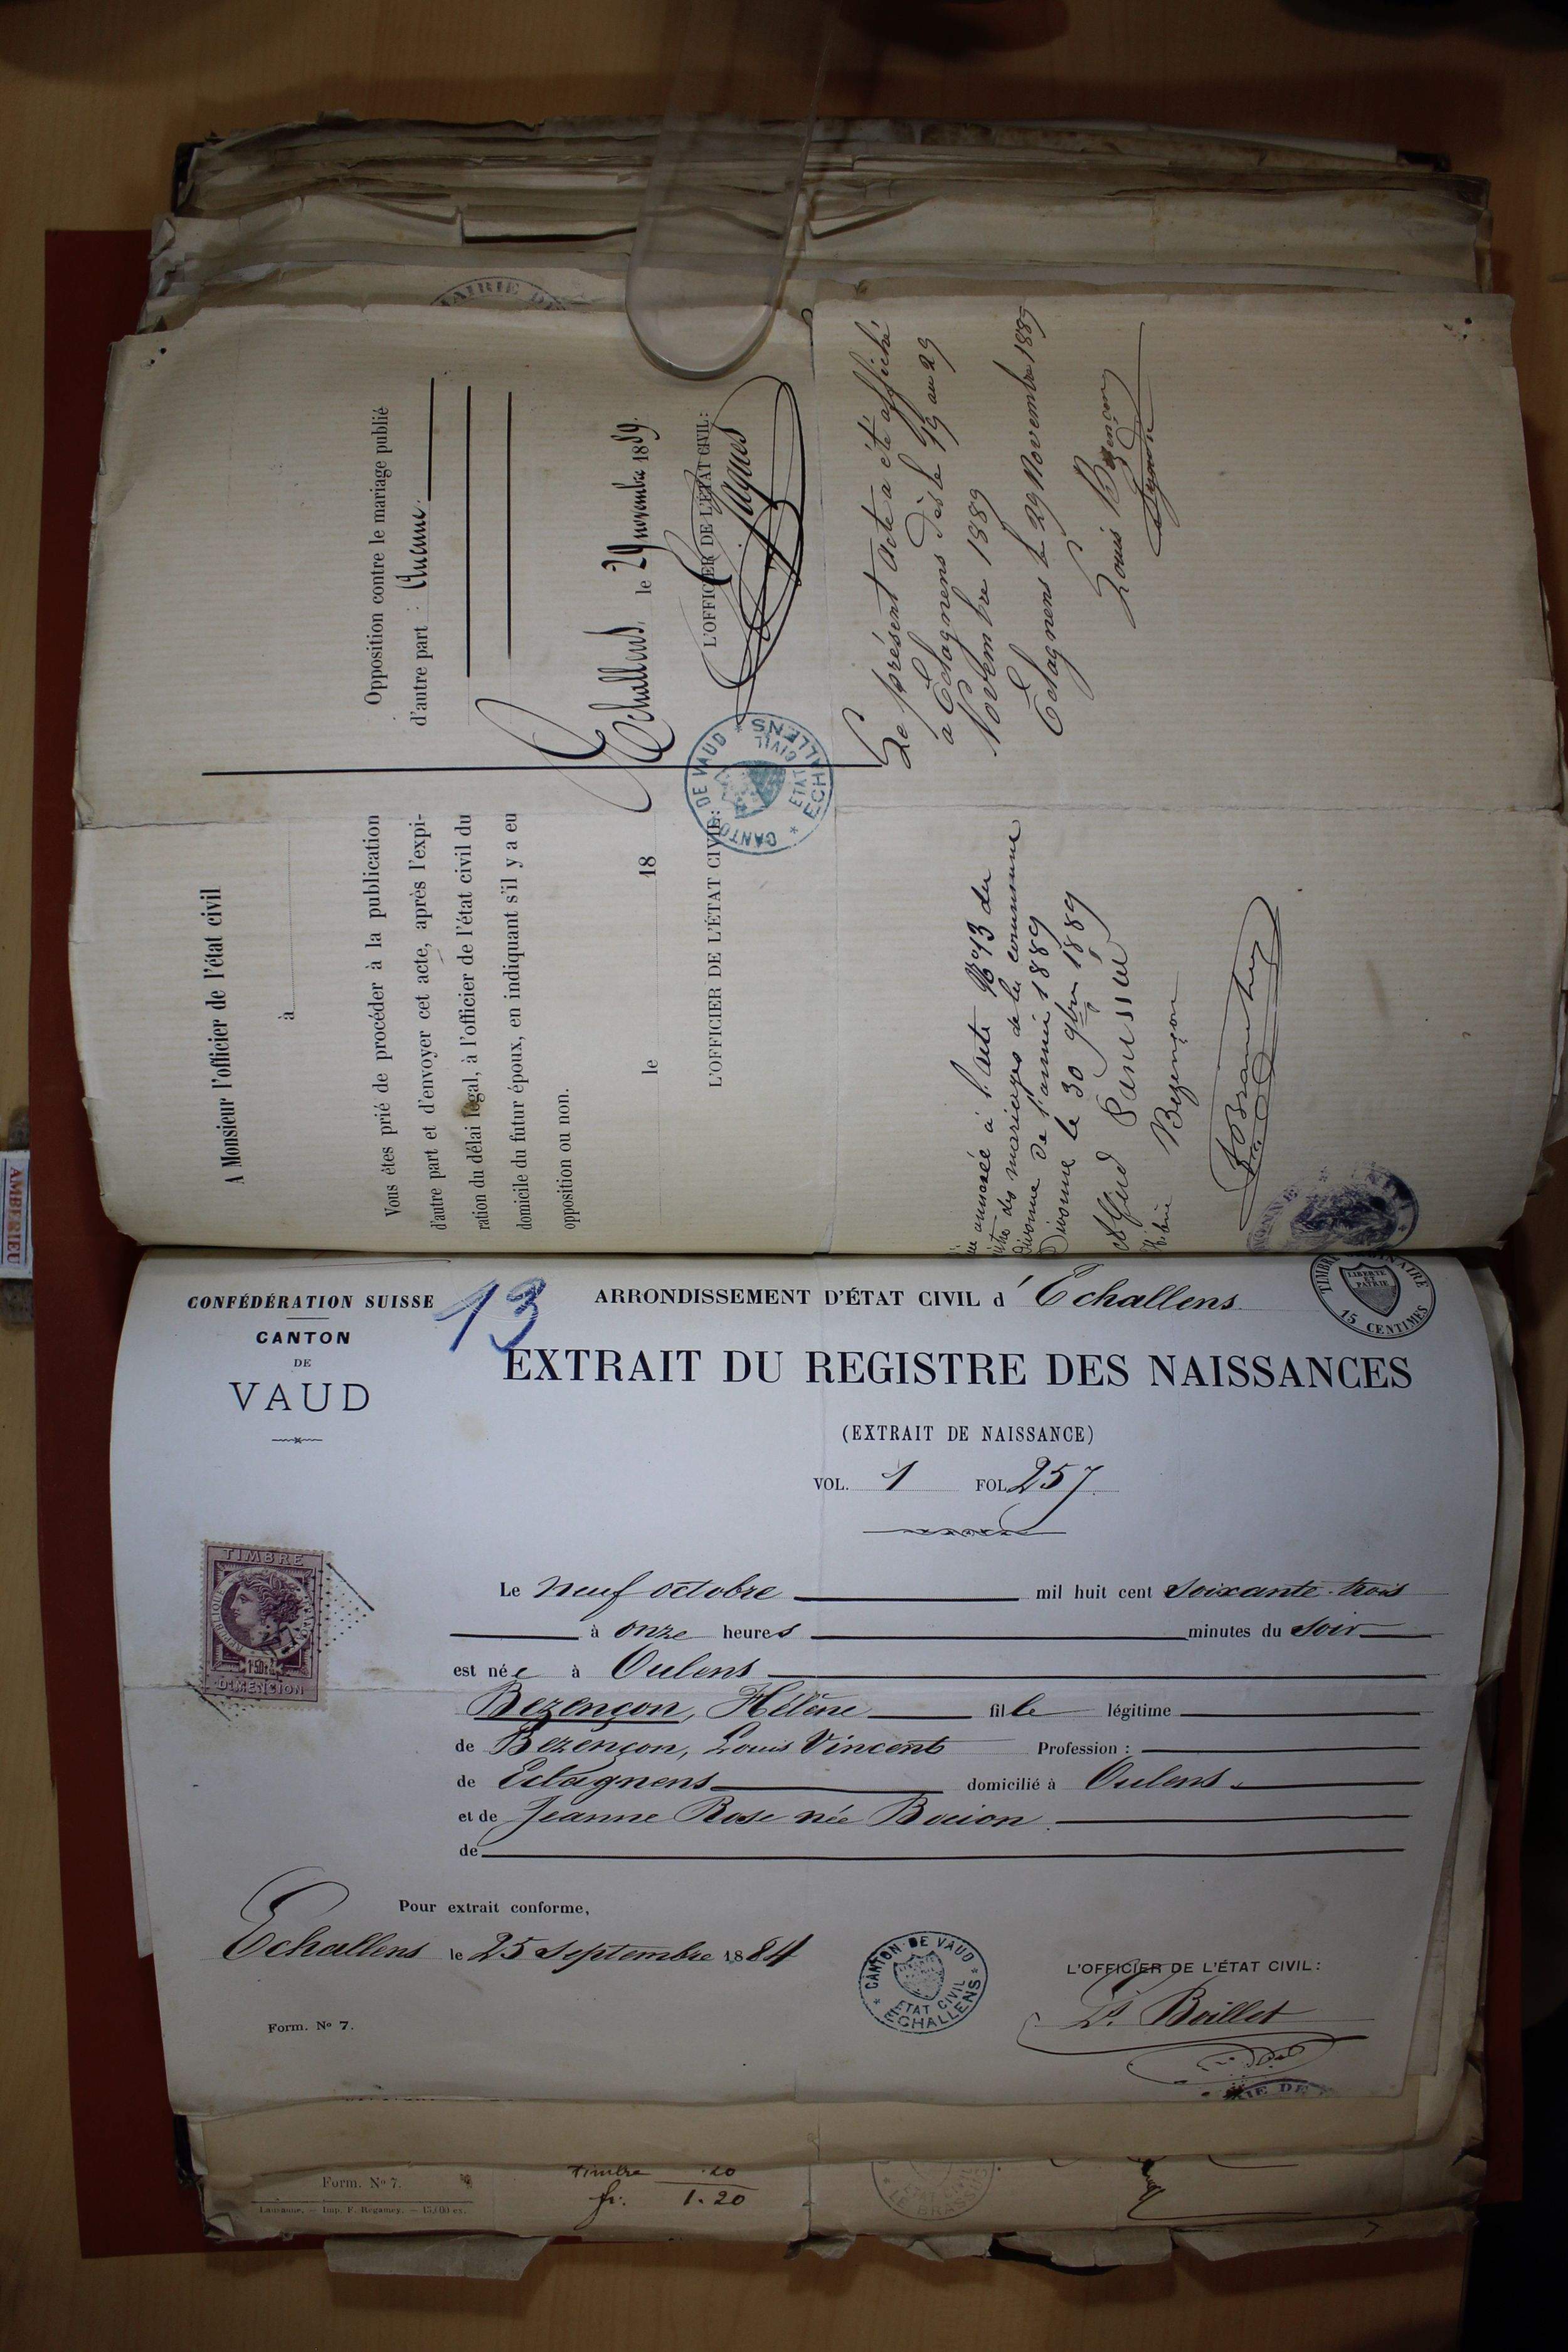 MAIRIE DE
A Monsieur l'officier de l'état civil
à
Vous êtes prié de procéder à la publication
d'autre part et d'envoyer cet acte, après l'expi-
ration du délai légal, à l'officier de l'état civil du
domicile du futur époux, en indiquant s'il y a eu
opposition ou non.
le 18
L'OFFICIER DE L'ÉTAT CIVIL:
Opposition contre le mariage publié
d'autre part : Aucune.
Echallens, le 29 novembre 1889.
L'OFFICIER DE L'ÉTAT CIVIL:
Jaques
CANTON DE VAUD
ETAT CIVIL
ECHALLENS
Le présent Acte a été affiché
à Eclagnens dès le 19 au 29
Novembre 1889
Eclagnens le 29 Novembre 1889
Louis Bezençon
annexée à l'acte No 13 du
des mariages de la commune
Divonne de l'année 1889
Divonne le 30 9bre 1889
Alfred
Bezençon
AMBERIEU
CONFÉDÉRATION SUISSE
CANTON
DE
VAUD
13
ARRONDISSEMENT D'ÉTAT CIVIL d'Echallens
TIMBRE ORDINAIRE
LIBERTÉ
ET
PATRIE
15 CENTIMES
EXTRAIT DU REGISTRE DES NAISSANCES
(EXTRAIT DE NAISSANCE)
VOL. 1 FOL. 257.
TIMBRE
REPUBLIQUE
DIMENSION
Le neuf octobre mil huit cent soixante-trois
à onze heures minutes du soir
est née à Oulens
Bezençon, Hélène fille légitime
de Bezençon, Louis Vincent Profession :
de Eclagnens domicilié à Oulens.
et de Jeanne Rose née Bovion.
de
Pour extrait conforme,
Echallens le 25 Septembre 1884
L'OFFICIER DE L'ÉTAT CIVIL:
Boillet
CANTON DE VAUD
ETAT CIVIL
ECHALLENS
Form. No 7.
Form. No 7.
Lausanne. — Imp. F. Regamey.
Timbre .20
fr. 1.20